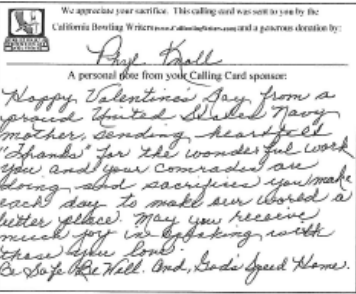 We appreciate your sacrifice. This calling card was sent to you by the
California Bowling Writers and a generous donation by:
Knoll
A personal note from your Calling Card sponsor:
Happy Valentine's Day from a
proud United States Navy
mother, sending heartfelt
"Thanks" for the wonderful work
you and your comrades are
doing and sacrifices you make
each day to make our world a
better place. May you receive
much joy in speaking with
those you love.
Be Safe Be Well. And, God's Speed Home.